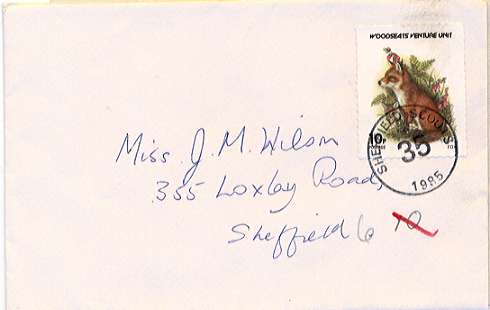 WOODSEATS VENTURE UNIT
10P
SHEFFIELD SCOUTS
35
1985
Miss J. M. Wilson
355 Loxley Road,
Sheffield 6 10